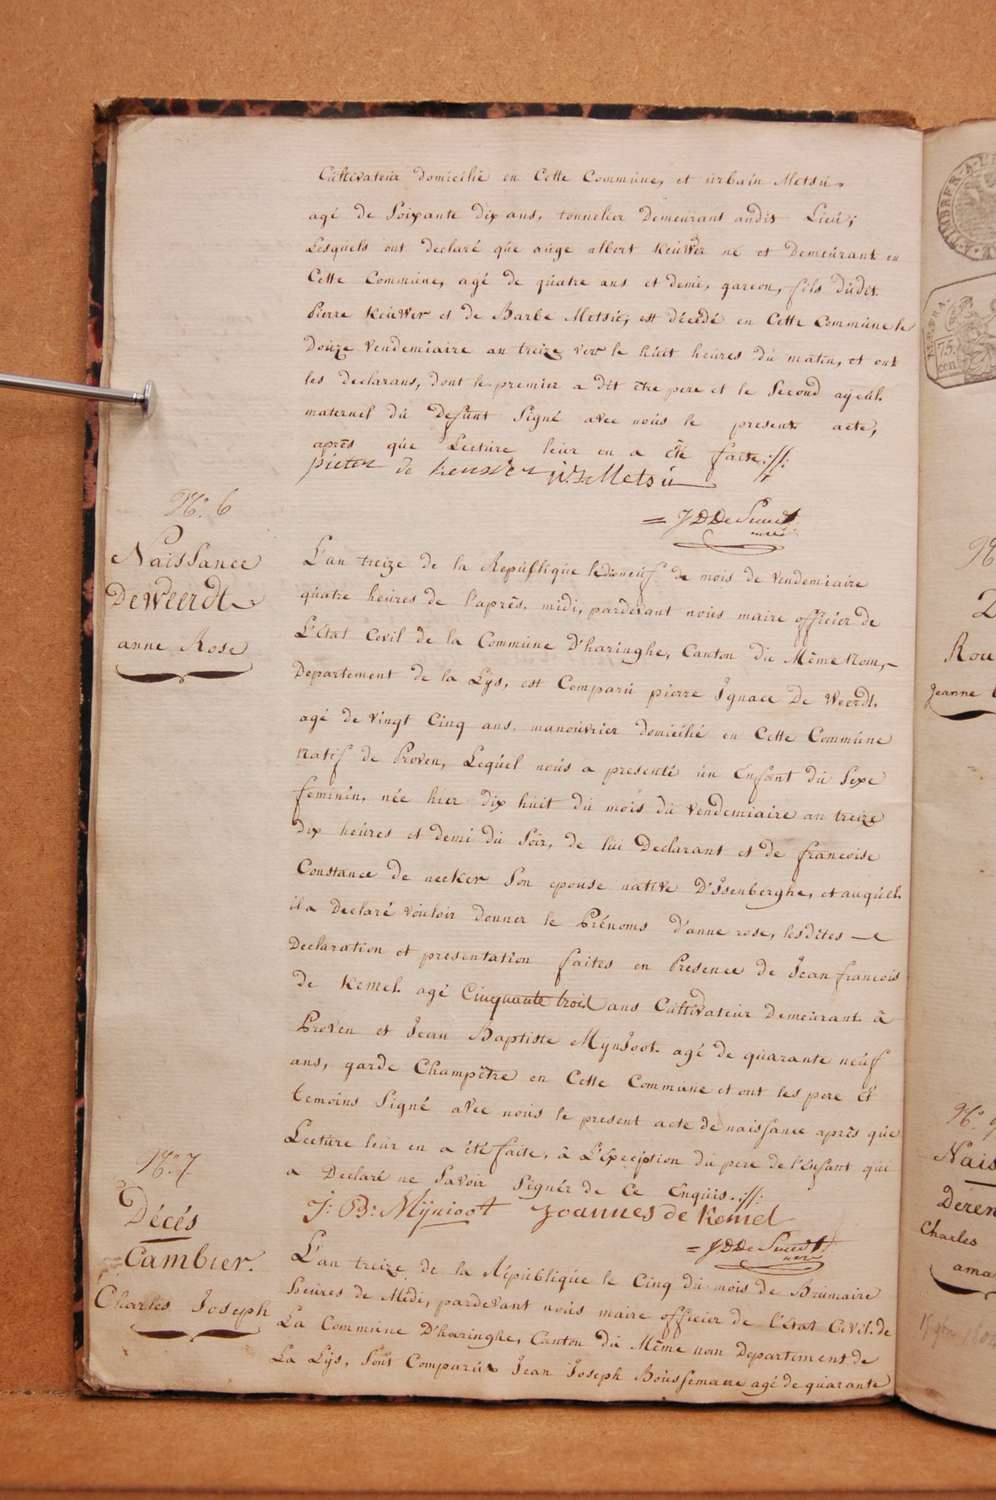 Cultivateur domicilié en Cette Commune, et urbain Metsu.
agé de Soixante dix ans, tonnelier Demeurant audit Lieu;
Lesquels ont declaré que auge albert Keuwer né et Demeurant en
Cette Commune, agé de quatre ans et demi, garcon, fils dudit
Pierre Keuwer et de Barbe Metsu, est décédé en Cette Commune le
Douze Vendemiaire an treize vers le huit heures du matin, et ont
les declarans, dont le premier a dit être pere et le Second ayeul
maternel du Defunt Signé avec nous le present acte,
après que Lecture leur en a été faite.
pieter de keuwer
Metsu
= J D De Smedt
maire
No. 6
Naissance
DeWeerdt
anne Rose
L'an treize de la Republique le dixneuf de mois de vendemiaire
quatre heures de l'après midi, pardevant nous maire officier de
L'état Covil de la Commune D'haringhe, Canton du Même Nom,
Departement de la Lys, est Comparu pierre Ignace De Weerdt,
agé de vingt Cinq ans, manouvrier domicilié en Cette Commune
Natif de Proven, Lequel nous a presenté un Enfant du Sexe
feminin, née hier dix huit du mois du vendemiaire an treize
dix heures et demi du Soir, de lui Declarant et de francoise
Constance de necker Son epouse native D'Isenberghe, et auquel
il a Declaré vouloir donner le Prénoms d'anne rose, lesdites
Declaration et presentation faites en Presence de Jean francois
de Kemel agé Cinquante trois ans Cultivateur Demeurant à
Proven et Jean Baptiste MynJoot agé de quarante neuf
ans, garde Champêtre en Cette Commune et ont les pere et
temoins Signé avec nous le present acte de naissance après que
Lecture leur en a été faite, à L'Exception du pere de l'enfant qui
a Declaré ne Savoir Signér de Ce Enquis.
J: B: Mijnioot Joannes de Kemel
= J D De Smedt
No. 7
Décés
Cambier.
Charles Joseph
L'an treize de la République le Cinq du mois de Brumaire
heures de Midi, pardevant nous maire officier de l'état Civil de
La Commune D'haringhe, Canton du Même nom Departement de
La Lys, Sont Comparus Jean Joseph Boussemaere agé de quarante
75
cen
No.
Rou
Jeanne
No.
Nais
Deren
Charles
ama